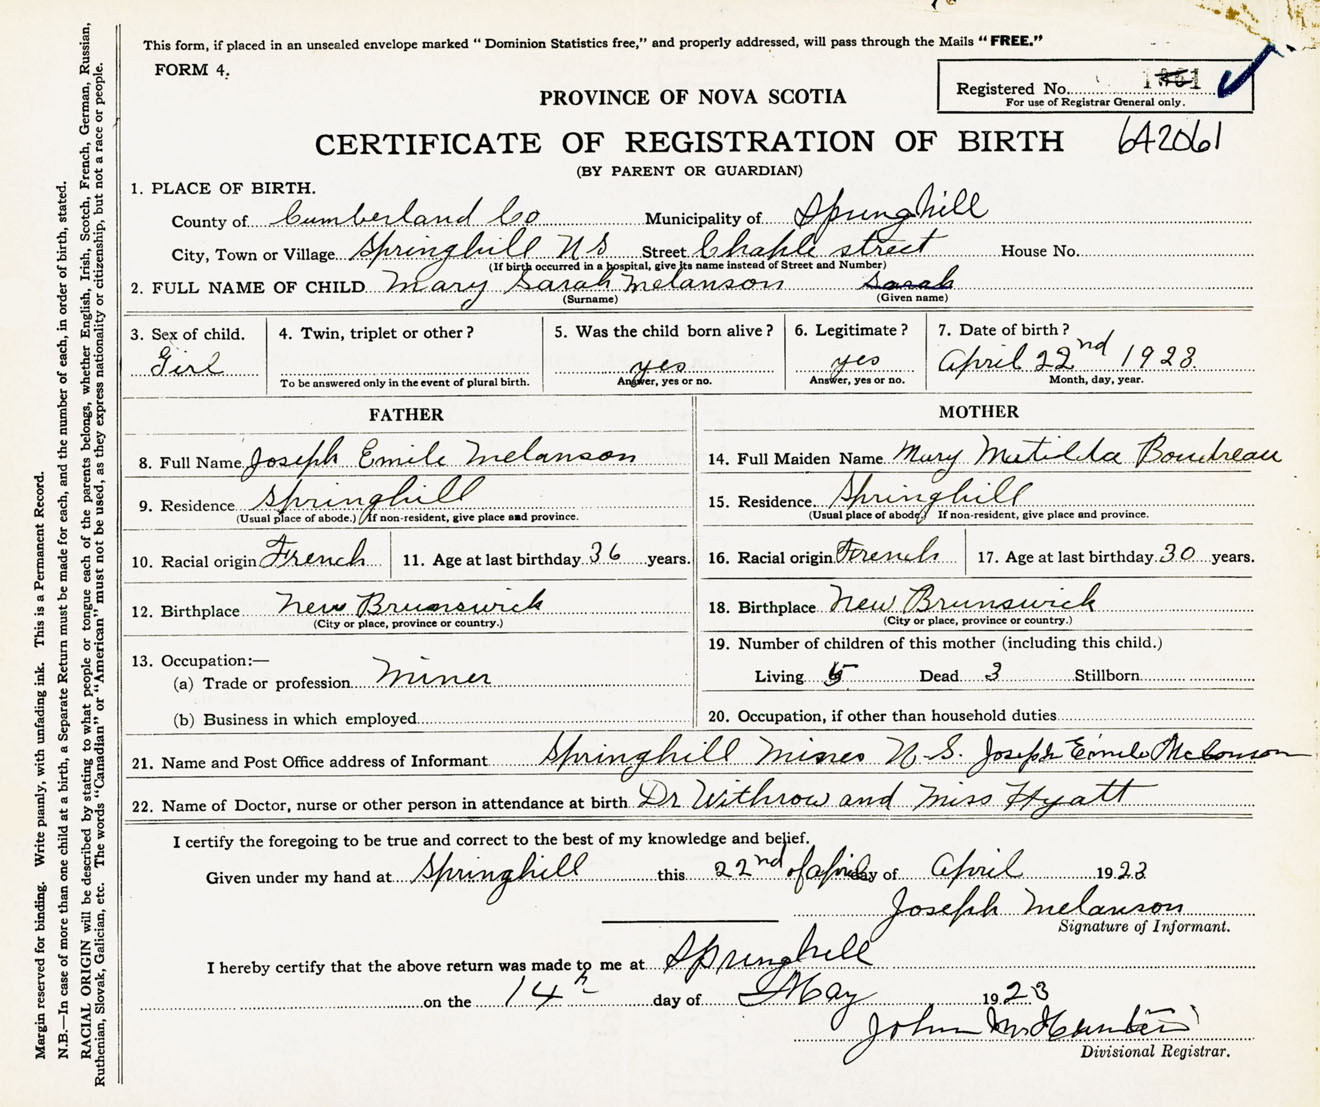 This form, if placed in an unsealed envelope marked “ Dominion Statistics free,” and properly addressed, will pass through the Mails “ FREE.”
FORM 4.
Registered No.
For use of Registrar General only.
PROVINCE OF NOVA SCOTIA
CERTIFICATE OF REGISTRATION OF BIRTH 642061
(BY PARENT OR GUARDIAN)
1. PLACE OF BIRTH.
County of Cumberland Co Municipality of Springhill
City, Town or Village Springhill N S Street Chaple street House No.
(If birth occurred in a hospital, give its name instead of Street and Number)
2. FULL NAME OF CHILD Mary Sarah Melanson Sarah
(Surname) (Given name)
3. Sex of child. 4. Twin, triplet or other? 5. Was the child born alive? 6. Legitimate? 7. Date of birth?
Girl yes yes April 22nd 1923.
To be answered only in the event of plural birth. Answer, yes or no. Answer, yes or no. Month, day, year.
FATHER MOTHER
8. Full Name Joseph Emile Melanson 14. Full Maiden Name Mary Matilda Boudreau
9. Residence Springhill 15. Residence Springhill
(Usual place of abode.) If non-resident, give place and province. (Usual place of abode) If non-resident, give place and province.
10. Racial origin French 11. Age at last birthday 36 years. 16. Racial origin French 17. Age at last birthday 30 years.
12. Birthplace New Brunswick 18. Birthplace New Brunswick
(City or place, province or country.) (City or place, province or country.)
19. Number of children of this mother (including this child.)
13. Occupation:—
(a) Trade or profession Miner Living 5 Dead 3 Stillborn
(b) Business in which employed 20. Occupation, if other than household duties
21. Name and Post Office address of Informant Springhill Mines N.S. Joseph Emile Melanson
22. Name of Doctor, nurse or other person in attendance at birth Dr Withrow and Miss Hyatt
I certify the foregoing to be true and correct to the best of my knowledge and belief.
Given under my hand at Springhill this 22nd of april day of April 1923
Joseph Melanson
Signature of Informant.
I hereby certify that the above return was made to me at Springhill
on the 14th day of May 1923
John
Divisional Registrar.
Margin reserved for binding. Write plainly, with unfading ink. This is a Permanent Record.
N.B.—In case of more than one child at a birth, a Separate Return must be made for each, and the number of each, in order of birth, stated.
RACIAL ORIGIN will be described by stating to what people or tongue each of the parents belongs, whether English, Irish, Scotch, French, German, Russian,
Ruthenian, Slovak, Galician, etc. The words “Canadian” or “American” must not be used, as they express nationality or citizenship, but not a race or people.